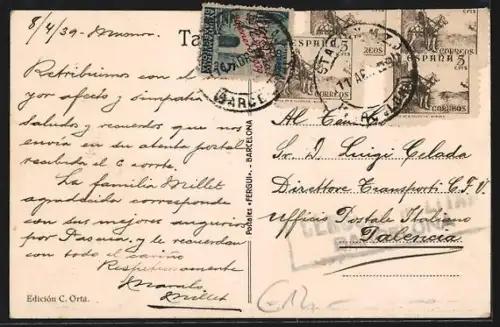 8/4/39
Ta
Retribuimos con el
yor afecto y simpatia
saludos y recuerdos que nos
envia en su atenta postal
recibida el c
La familia Millet
agradecida corresponde
con sus mejores augurios
por Pascua, y le recuerdan
con todo el cariño
Respetuosamente
Millet
Edición C. Orta.
Postales «FERGUI».- BARCELONA
ESPAÑA
5
CTS
CORREOS
BARCE
Al
Sr. D. Luigi Celada
Direttore Transporti C.F.V.
Ufficio Postale Italiano
Palencia
CENSURA MILITAR